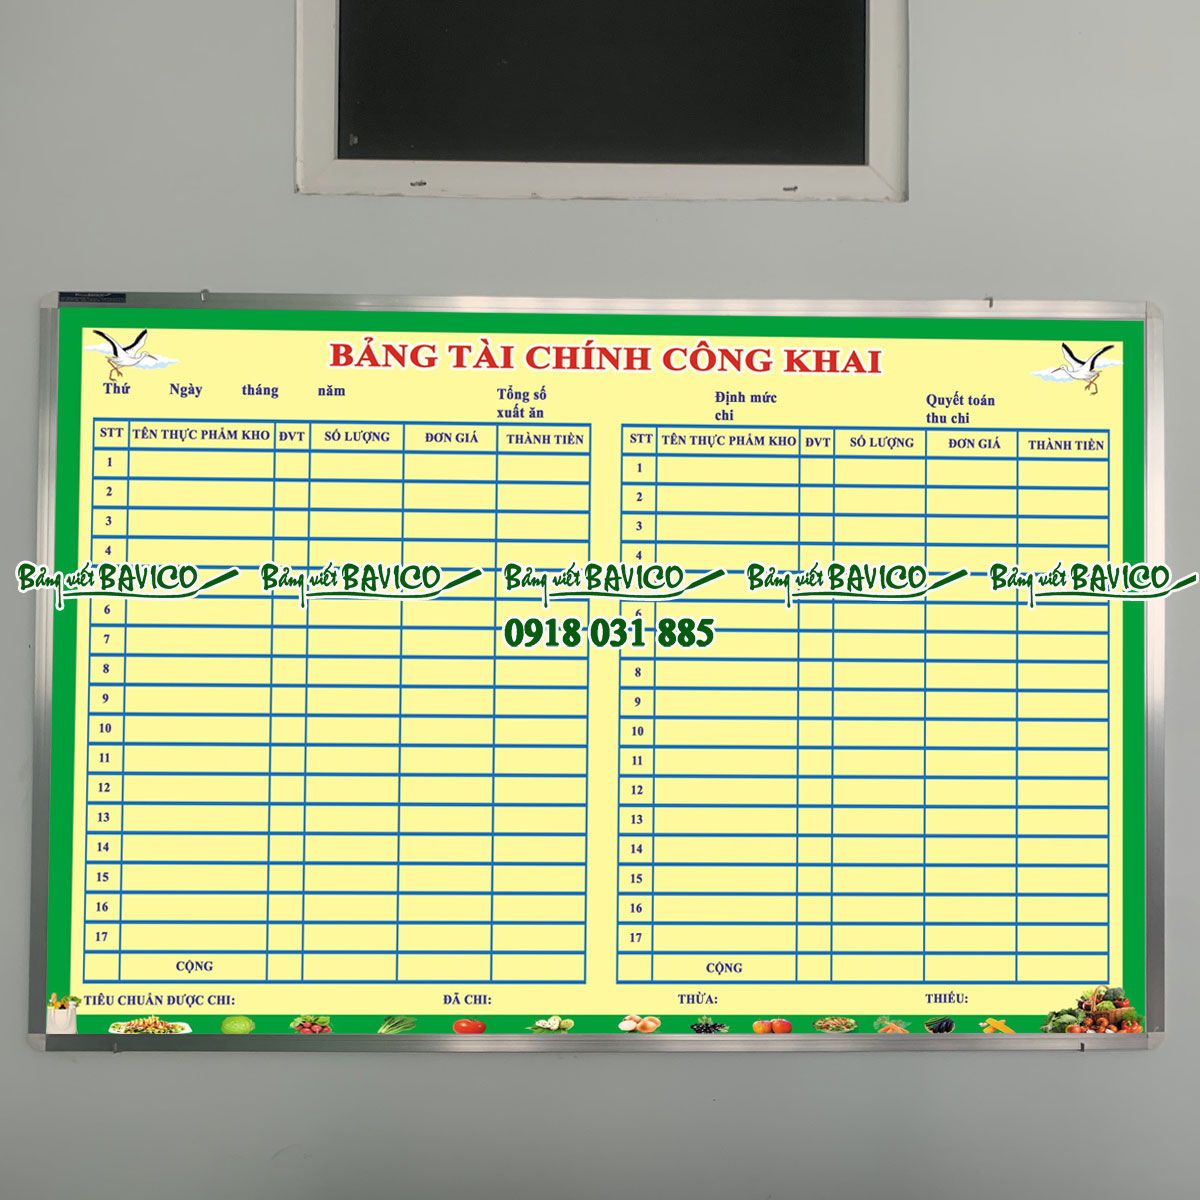 BẢNG TÀI CHÍNH CÔNG KHAI
Thứ Ngày tháng năm Tổng số xuất ăn Định mức chi Quyết toán thu chi
STT TÊN THỰC PHẨM KHO ĐVT SỐ LƯỢNG ĐƠN GIÁ THÀNH TIỀN STT TÊN THỰC PHẨM KHO ĐVT SỐ LƯỢNG ĐƠN GIÁ THÀNH TIỀN
1 1
2 2
3 3
4 4
Bảng viết BAVICO Bảng viết BAVICO Bảng viết BAVICO Bảng viết BAVICO Bảng viết BAVICO
6 6
0918 031 885
7
8 8
9 9
10 10
11 11
12 12
13 13
14 14
15 15
16 16
17 17
CỘNG CỘNG
TIÊU CHUẨN ĐƯỢC CHI: ĐÃ CHI: THỪA: THIẾU: